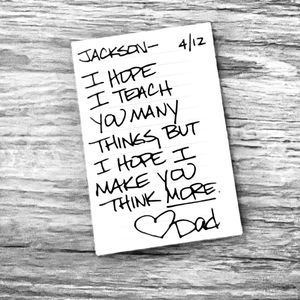 JACKSON— 4/12
I HOPE
I TEACH
YOU MANY
THINGS, BUT
I HOPE I
MAKE YOU
THINK MORE.
♡Dad